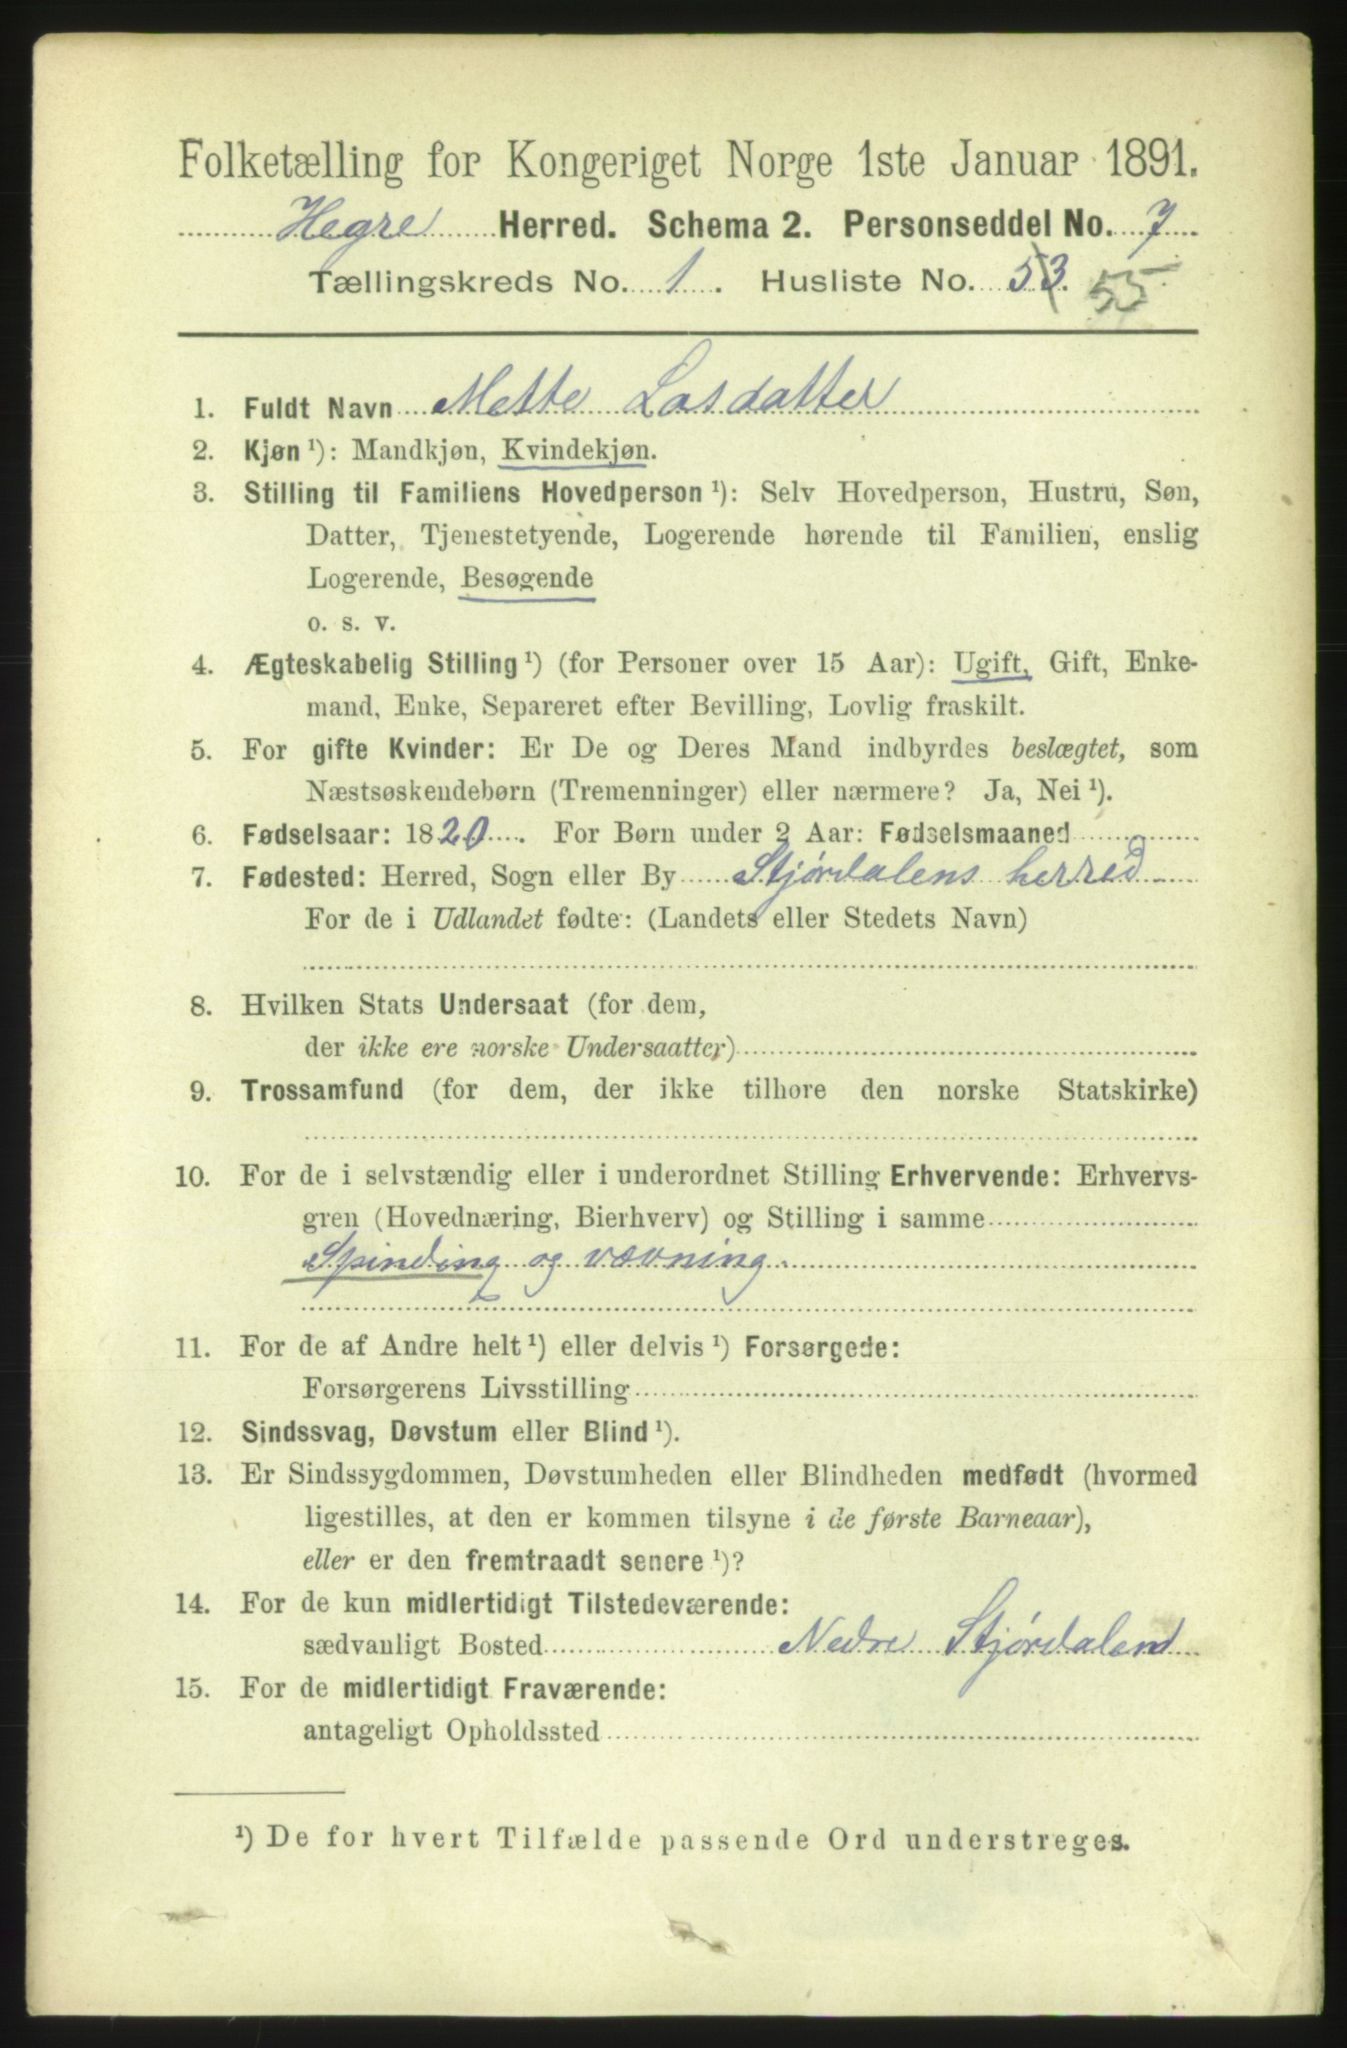 Folketælling for Kongeriget Norge 1ste Januar 1891.
Hegre Herred. Schema 2. Personseddel No. 7
Tællingskreds No. 1. Husliste No. 53. 55
1. Fuldt Navn Mette Lasdatter
2. Kjøn ¹): Mandkjøn, Kvindekjøn.
3. Stilling til Familiens Hovedperson ¹): Selv Hovedperson, Hustru, Søn,
Datter, Tjenestetyende, Logerende hørende til Familien, enslig
Logerende, Besøgende
o. s. v.
4. Ægteskabelig Stilling ¹) (for Personer over 15 Aar): Ugift, Gift, Enke-
mand, Enke, Separeret efter Bevilling, Lovlig fraskilt.
5. For gifte Kvinder: Er De og Deres Mand indbyrdes beslægtet, som
Næstsøskendebørn (Tremenninger) eller nærmere? Ja, Nei ¹).
6. Fødselsaar: 1820. For Børn under 2 Aar: Fødselsmaaned
7. Fødested: Herred, Sogn eller By Stjørdalens herred
For de i Udlandet fødte: (Landets eller Stedets Navn)
8. Hvilken Stats Undersaat (for dem,
der ikke ere norske Undersaatter)
9. Trossamfund (for dem, der ikke tilhøre den norske Statskirke)
10. For de i selvstændig eller i underordnet Stilling Erhvervende: Erhvervs-
gren (Hovednæring, Bierhverv) og Stilling i samme
Spinding og vævning.
11. For de af Andre helt ¹) eller delvis ¹) Forsørgede:
Forsørgerens Livsstilling
12. Sindssvag, Døvstum eller Blind ¹).
13. Er Sindssygdommen, Døvstumheden eller Blindheden medfødt (hvormed
ligestilles, at den er kommen tilsyne i de første Barneaar),
eller er den fremtraadt senere ¹)?
14. For de kun midlertidigt Tilstedeværende:
sædvanligt Bosted Nedre Stjørdalen
15. For de midlertidigt Fraværende:
antageligt Opholdssted
¹) De for hvert Tilfælde passende Ord understreges.